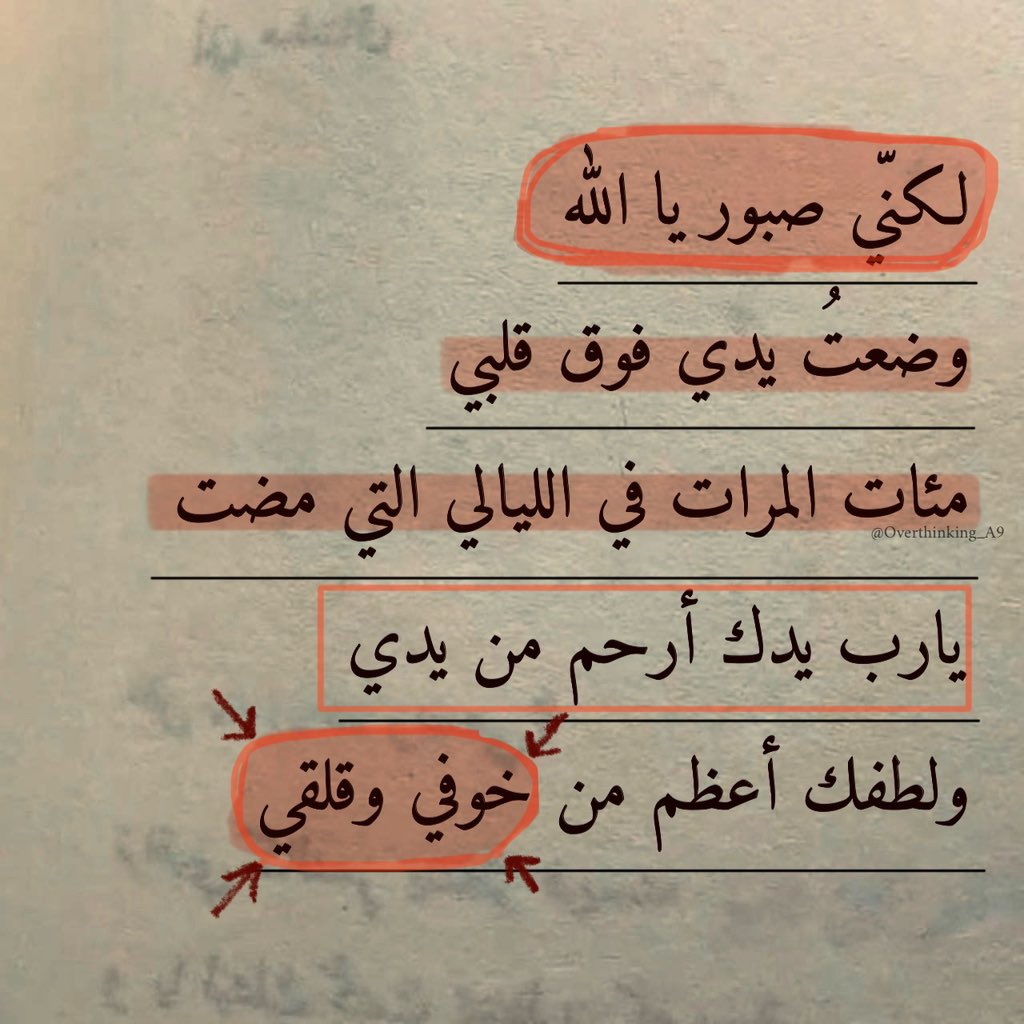 لكنّي صبور يا الله
وضعتُ يدي فوق قلبي
مئات المرات في الليالي التي مضت
@Overthinking_A9
يارب يدك أرحم من يدي
ولطفك أعظم من خوفي وقلقي